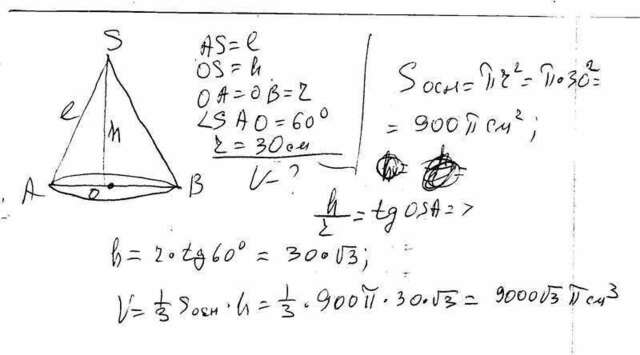 S
l
h
A
O
B
AS = l
OS = h
OA = OB = r
∠SAO = 60°
r = 30 см
V = ?
Sосн = πr² = π·30² =
= 900π см²;
h/r = tg OSA =>
h = r·tg60° = 30·√3;
V = 1/3 Sосн·h = 1/3·900π·30·√3 = 9000√3 π см³